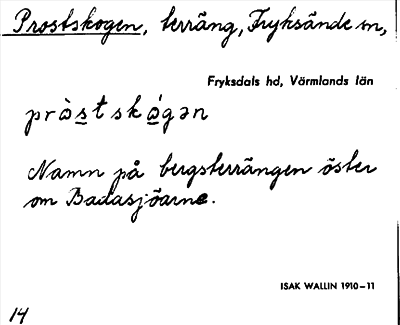 Prostskogen, terräng, Fryksände sn,
Fryksdals hd, Värmlands län
pròstskógən
Namn på bergsterrängen öster
om Badasjöarne.
ISAK WALLIN 1910–11
14